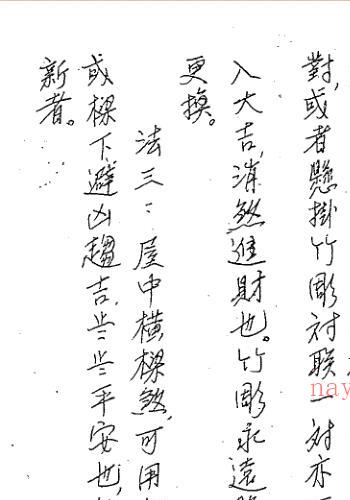 對,或者懸掛竹彫对联一对亦
入大吉,消煞進財也。竹彫永遠
更換。
法三:屋中橫樑煞,可用
或樑下避凶趨吉,岁岁平安也,
新者。
nay